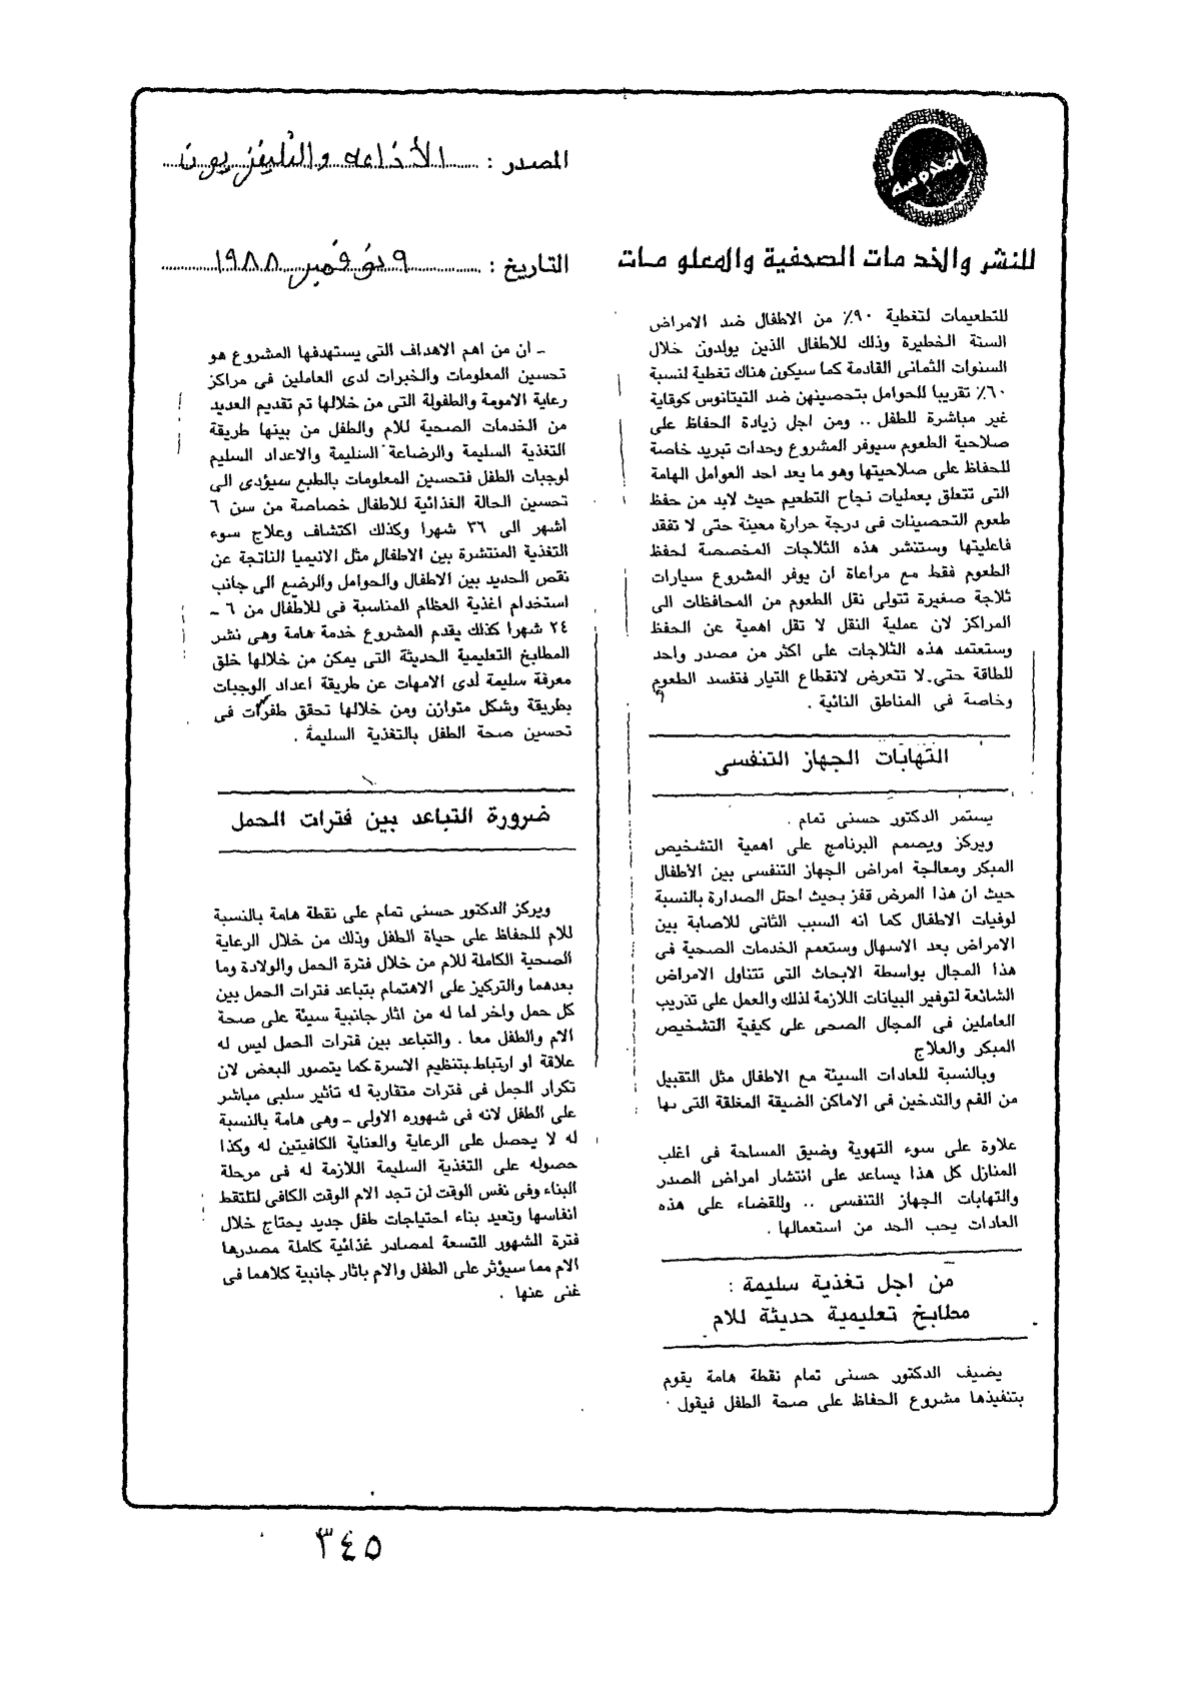 المصدر : الأذاعه والتليفزيون
للنشر والخدمات الصحفية والمعلومات
التاريخ : ٩ نوفمبر ١٩٨٨
للتطعيمات لتغطية ٩٠٪ من الاطفال ضد الامراض
الستة الخطيرة وذلك للاطفال الذين يولدون خلال
السنوات الثمانى القادمة كما سيكون هناك تغطية لنسبة
٦٠٪ تقريبا للحوامل بتحصينهن ضد التيتانوس كوقاية
غير مباشرة للطفل .. ومن اجل زيادة الحفاظ على
صلاحية الطعوم سيوفر المشروع وحدات تبريد خاصة
للحفاظ على صلاحيتها وهو ما يعد احد العوامل الهامة
التى تتعلق بعمليات نجاح التطعيم حيث لابد من حفظ
طعوم التحصينات فى درجة حرارة معينة حتى لا تفقد
فاعليتها وستنشر هذه الثلاجات المخصصة لحفظ
الطعوم فقط مع مراعاة ان يوفر المشروع سيارات
ثلاجة صغيرة تتولى نقل الطعوم من المحافظات الى
المراكز لان عملية النقل لا تقل اهمية عن الحفظ
وستعتمد هذه الثلاجات على اكثر من مصدر واحد
للطاقة حتى لا تتعرض لانقطاع التيار فتفسد الطعوم
وخاصة فى المناطق النائية .
التهابات الجهاز التنفسى
يستمر الدكتور حسنى تمام .
ويركز ويصمم البرنامج على اهمية التشخيص
المبكر ومعالجة امراض الجهاز التنفسى بين الأطفال
حيث ان هذا المرض قفز بحيث احتل الصدارة بالنسبة
لوفيات الاطفال كما انه السبب الثانى للاصابة بين
الامراض بعد الاسهال وستعمم الخدمات الصحية فى
هذا المجال بواسطة الابحاث التى تتناول الامراض
الشائعة لتوفير البيانات اللازمة لذلك والعمل على تدريب
العاملين فى المجال الصحى على كيفية التشخيص
المبكر والعلاج
وبالنسبة للعادات السيئة مع الاطفال مثل التقبيل
من الفم والتدخين فى الاماكن الضيقة المغلقة التى بها
علاوة على سوء التهوية وضيق المساحة فى اغلب
المنازل كل هذا يساعد على انتشار امراض الصدر
والتهابات الجهاز التنفسى .. وللقضاء على هذه
العادات يحب الحد من استعمالها .
من اجل تغذية سليمة :
مطابخ تعليمية حديثة للام
يضيف الدكتور حسنى تمام نقطة هامة يقوم
بتنفيذها مشروع الحفاظ على صحة الطفل فيقول .
ـ ان من اهم الاهداف التى يستهدفها المشروع هو
تحسين المعلومات والخبرات لدى العاملين فى مراكز
رعاية الامومة والطفولة التى من خلالها تم تقديم العديد
من الخدمات الصحية للام والطفل من بينها طريقة
التغذية السليمة والرضاعة السليمة والاعداد السليم
لوجبات الطفل فتحسين المعلومات بالطبع سيؤدى الى
تحسين الحالة الغذائية للاطفال خصاصة من سن ٦
أشهر الى ٣٦ شهرا وكذلك اكتشاف وعلاج سوء
التغذية المنتشرة بين الاطفال مثل الانيميا الناتجة عن
نقص الحديد بين الاطفال والحوامل والرضع الى جانب
استخدام اغذية العظام المناسبة فى للاطفال من ٦ ـ
٢٤ شهرا كذلك يقدم المشروع خدمة هامة وهى نشر
المطابخ التعليمية الحديثة التى يمكن من خلالها خلق
معرفة سليمة لدى الامهات عن طريقة اعداد الوجبات
بطريقة وشكل متوازن ومن خلالها تحقق طفرات فى
تحسين صحة الطفل بالتغذية السليمة .
ضرورة التباعد بين فترات الحمل
ويركز الدكتور حسنى تمام على نقطة هامة بالنسبة
للام للحفاظ على حياة الطفل وذلك من خلال الرعاية
الصحية الكاملة للام من خلال فترة الحمل والولادة وما
بعدهما والتركيز على الاهتمام بتباعد فترات الحمل بين
كل حمل واخر لما له من اثار جانبية سيئة على صحة
الام والطفل معا . والتباعد بين فترات الحمل ليس له
علاقة او ارتباط بتنظيم الاسرة كما يتصور البعض لان
تكرار الحمل فى فترات متقاربة له تأثير سلبى مباشر
على الطفل لانه فى شهوره الاولى ـ وهى هامة بالنسبة
له لا يحصل على الرعاية والعناية الكافيتين له وكذا
حصوله على التغذية السليمة اللازمة له فى مرحلة
البناء وفى نفس الوقت لن تجد الام الوقت الكافى لتلتقط
انفاسها وتعيد بناء احتياجات طفل جديد يحتاج خلال
فترة الشهور التسعة لمصادر غذائية كاملة مصدرها
الام مما سيؤثر على الطفل والام باثار جانبية كلاهما فى
غنى عنها .
٣٤٥